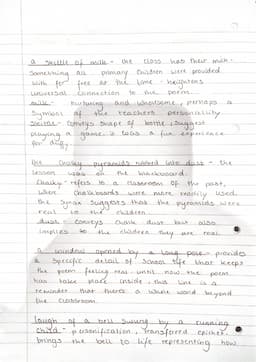 a skittle of milk - the class has their milk -
something all primary children were provided
with for free at the time - heightens
universal connection to the poem.
milk - nurturing and wholesome, perhaps a
symbol of the teachers personality
skittle - conveys shape of bottle, suggest
playing a game is a fun experience
for
the chalky pyramids rubbed into dust - the
lesson was on the blackboard.
Chalky - refers to a classroom of the past,
where chalkboards were more readily used.
the suggests that the pyramids were
real to the children.
dust - conveys chalk dust but also
implies to the children they are real
a window opened by a long pole - provides
a specific detail of school life that keeps
the poem feeling real. until now the poem
has take place inside, this line is a
reminder that there's a whole world beyond
the classroom.
laugh of a bell swung by a running
child - personification, transferred epithet.
brings the bell to life representing how